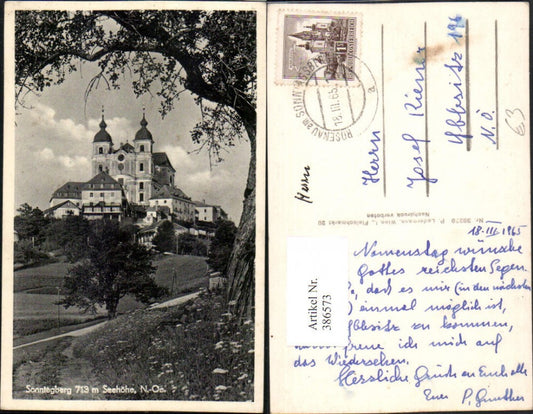 Sonntagberg 713 m Seehöhe, N.-Oe.
ROSENAU AM SONNTAGBERG
18.III.65
a
Herrn
Herrn
Josef Rieser
Ybbsitz 196
N.Ö.
63
Nr. 30270 P. Ledermann, Wien I., Fleischmarkt 20
Nachdruck verboten
Artikel Nr.
386573
18.III.1965
Namenstag wünsche
Gottes reichsten Segen.
daß es mir (in den nächsten
) einmal möglich ist,
Ybbsitz zu kommen,
freue ich mich auf
das Wiedersehen.
Herzliche Grüße an Euch alle
Euer P. Günther